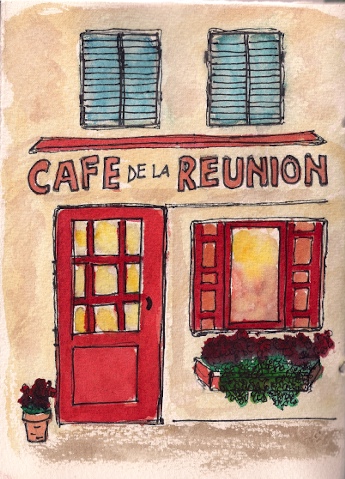 CAFE DE LA REUNION